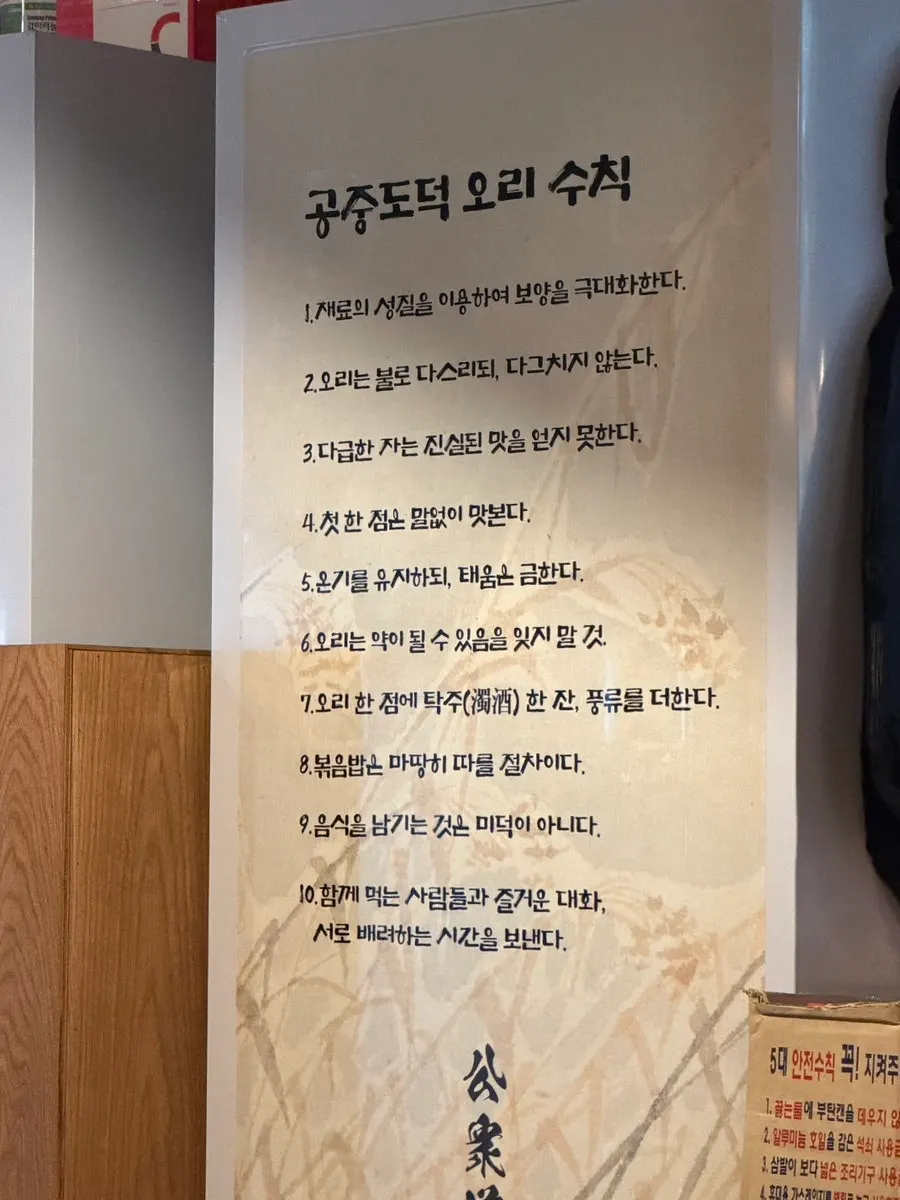 공중도덕 오리 수칙
1.재료의 성질을 이용하여 보양을 극대화한다.
2.오리는 불로 다스리되, 다그치지 않는다.
3.다급한 자는 진실된 맛을 얻지 못한다.
4.첫 한 점은 말없이 맛본다.
5.온기를 유지하되, 태움은 금한다.
6.오리는 약이 될 수 있음을 잊지 말 것.
7.오리 한 점에 탁주(濁酒) 한 잔, 풍류를 더한다.
8.볶음밥은 마땅히 따를 절차이다.
9.음식을 남기는 것은 미덕이 아니다.
10.함께 먹는 사람들과 즐거운 대화,
서로 배려하는 시간을 보낸다.
公衆
5대 안전수칙 꼭! 지켜주
1. 끓는물에 부탄캔을 데우지
2. 알루미늄 호일을 감은 석쇠 사용
3. 삼발이 보다 넓은 조리기구 사용